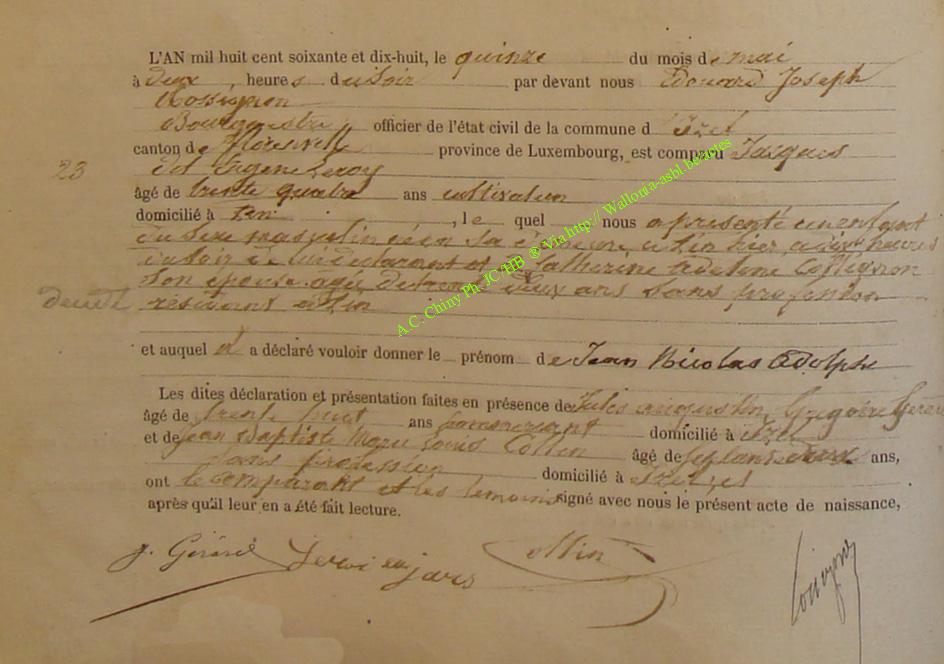 L'AN mil huit cent soixante et dix-huit, le quinze du mois de mai
à deux heures du soir par devant nous Edouard Joseph
Rossignon
Bourgmestre officier de l'état civil de la commune d'Izel
canton de Florenville province de Luxembourg, est comparu Jacques
23
Eugène Leroy
âgé de trente quatre ans cultivateur
domicilié à , le quel nous a présenté un enfant
du sexe masculin né en sa demeure hier, à heures
du soir de lui déclarant et Catherine Adeline
son épouse âgée de trente deux ans sans profession
résident
et auquel il a déclaré vouloir donner le prénom de Jean Nicolas Adolphe
Les dites déclaration et présentation faites en présence de Jules augustin, Grégoire Gérard
âgé de trente huit ans commerçant domicilié à Izel
et de Jean Baptiste Marie Louis Collin âgé de septante deux ans,
sans profession domicilié à Izel, et
ont le comparant et les temoins signé avec nous le présent acte de naissance,
après qu'il leur en a été fait lecture.
J. Gérard Collin
A.C. Chiny Ph. JC/HB ® Via http:// Wallonia-asbl.be/actes